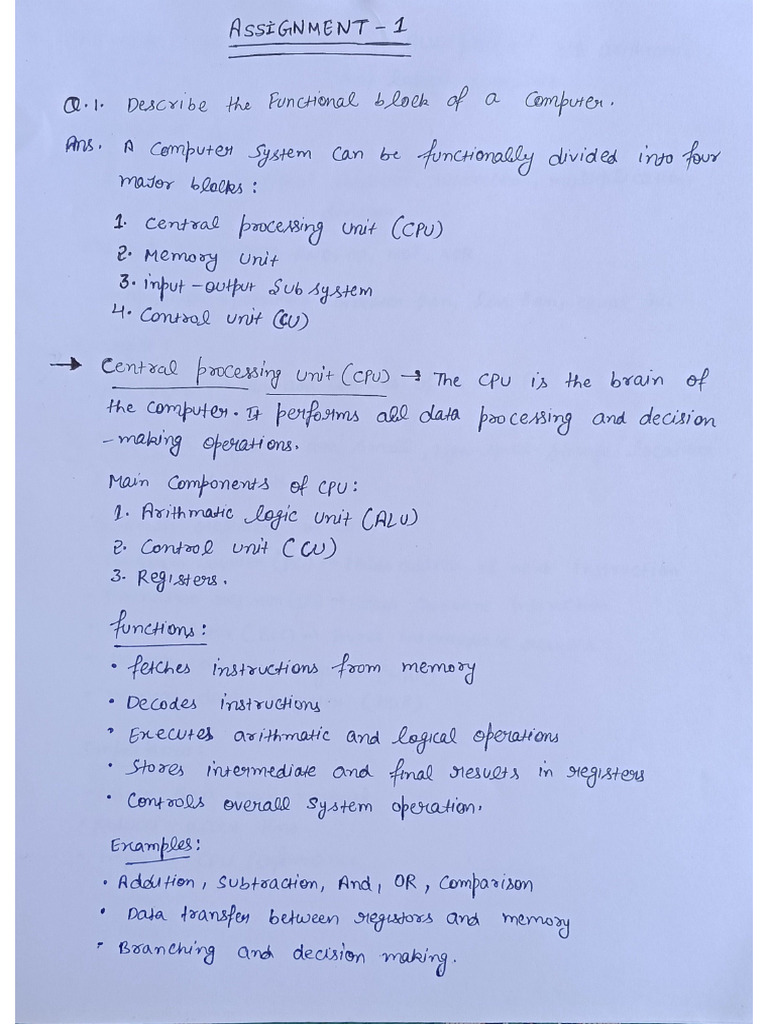 ASSIGNMENT - 1
Q.1. Describe the Functional block of a Computer.
Ans. A Computer System can be functionally divided into four
major blocks:
1. Central processing unit (CPU)
2. Memory unit
3. input-output Sub system
4. Control unit (CU)
→ Central processing unit (CPU) → The CPU is the brain of
the Computer. It performs all data processing and decision
-making operations.
Main Components of CPU:
1. Arithmatic logic unit (ALU)
2. Control unit (CU)
3. Registers.
functions:
• fetches instructions from memory
• Decodes instructions
• Executes arithmatic and logical operations
• Stores intermediate and final results in registers
• Controls overall System operation.
Examples:
• Addition, Subtraction, And, OR, Comparison
• Data transfer between registors and memory
• Branching and decision making.